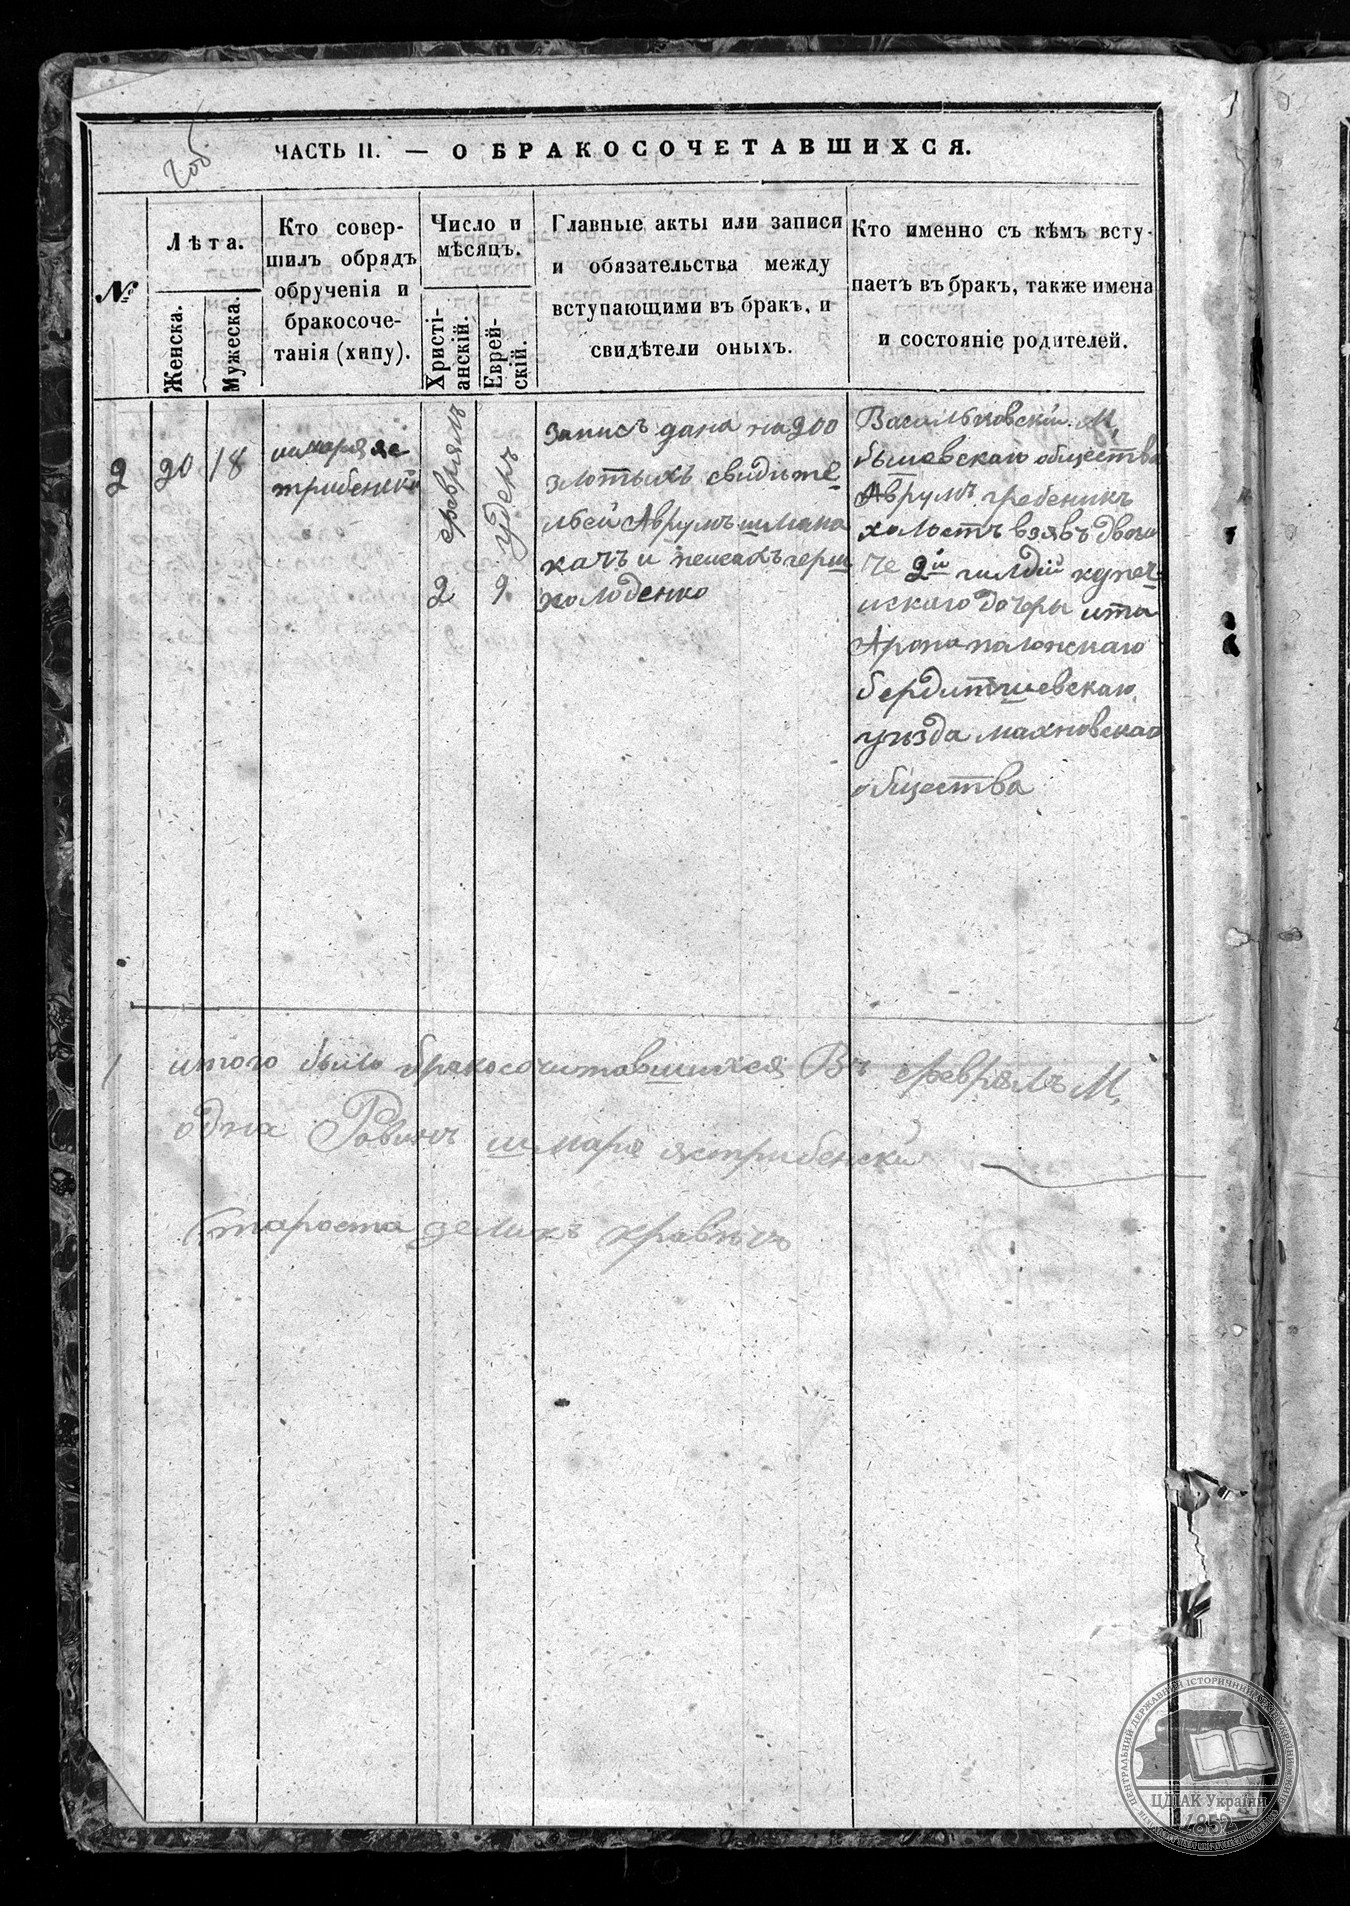 2об
ЧАСТЬ II. — О БРАКОСОЧЕТАВШИХСЯ.
№
Лѣта.
Женска.
Мужеска.
Кто совер-
шилъ обрядъ
обрученія и
бракосоче-
танія (хипу).
Число и
мѣсяцъ.
Христі-
анскій.
Еврей-
скій.
Главные акты или записи
и обязательства между
вступающими въ бракъ, и
свидѣтели оныхъ.
Кто именно съ кѣмъ всту-
паетъ въ бракъ, также имена
и состояніе родителей.
2
20
18
шмаря яс
трибенскій
февраля
2
9
Запись дана на 200
злотыхъ свидѣте
лѣй Аврумъ шмана
качъ и герш
холоденко
Васильковскій М,
бышевскаго общества
Аврумъ гребеникъ
холостъ взявъ двои
че 2й гилдій купеч
искаго дочеры ита
Арона полонскаго
бердитшевскаго
уѣзда махновскаго
общества
1
итого было бракосочитавшихся Въ февралѣ М,
одна Равинъ шмаря ястрибенскій
Староста зелихъ кравецъ
ЦЕНТРАЛЬНИЙ ДЕРЖАВНИЙ ІСТОРИЧНИЙ АРХІВ УКРАЇНИ
ЦДІАК України
1852